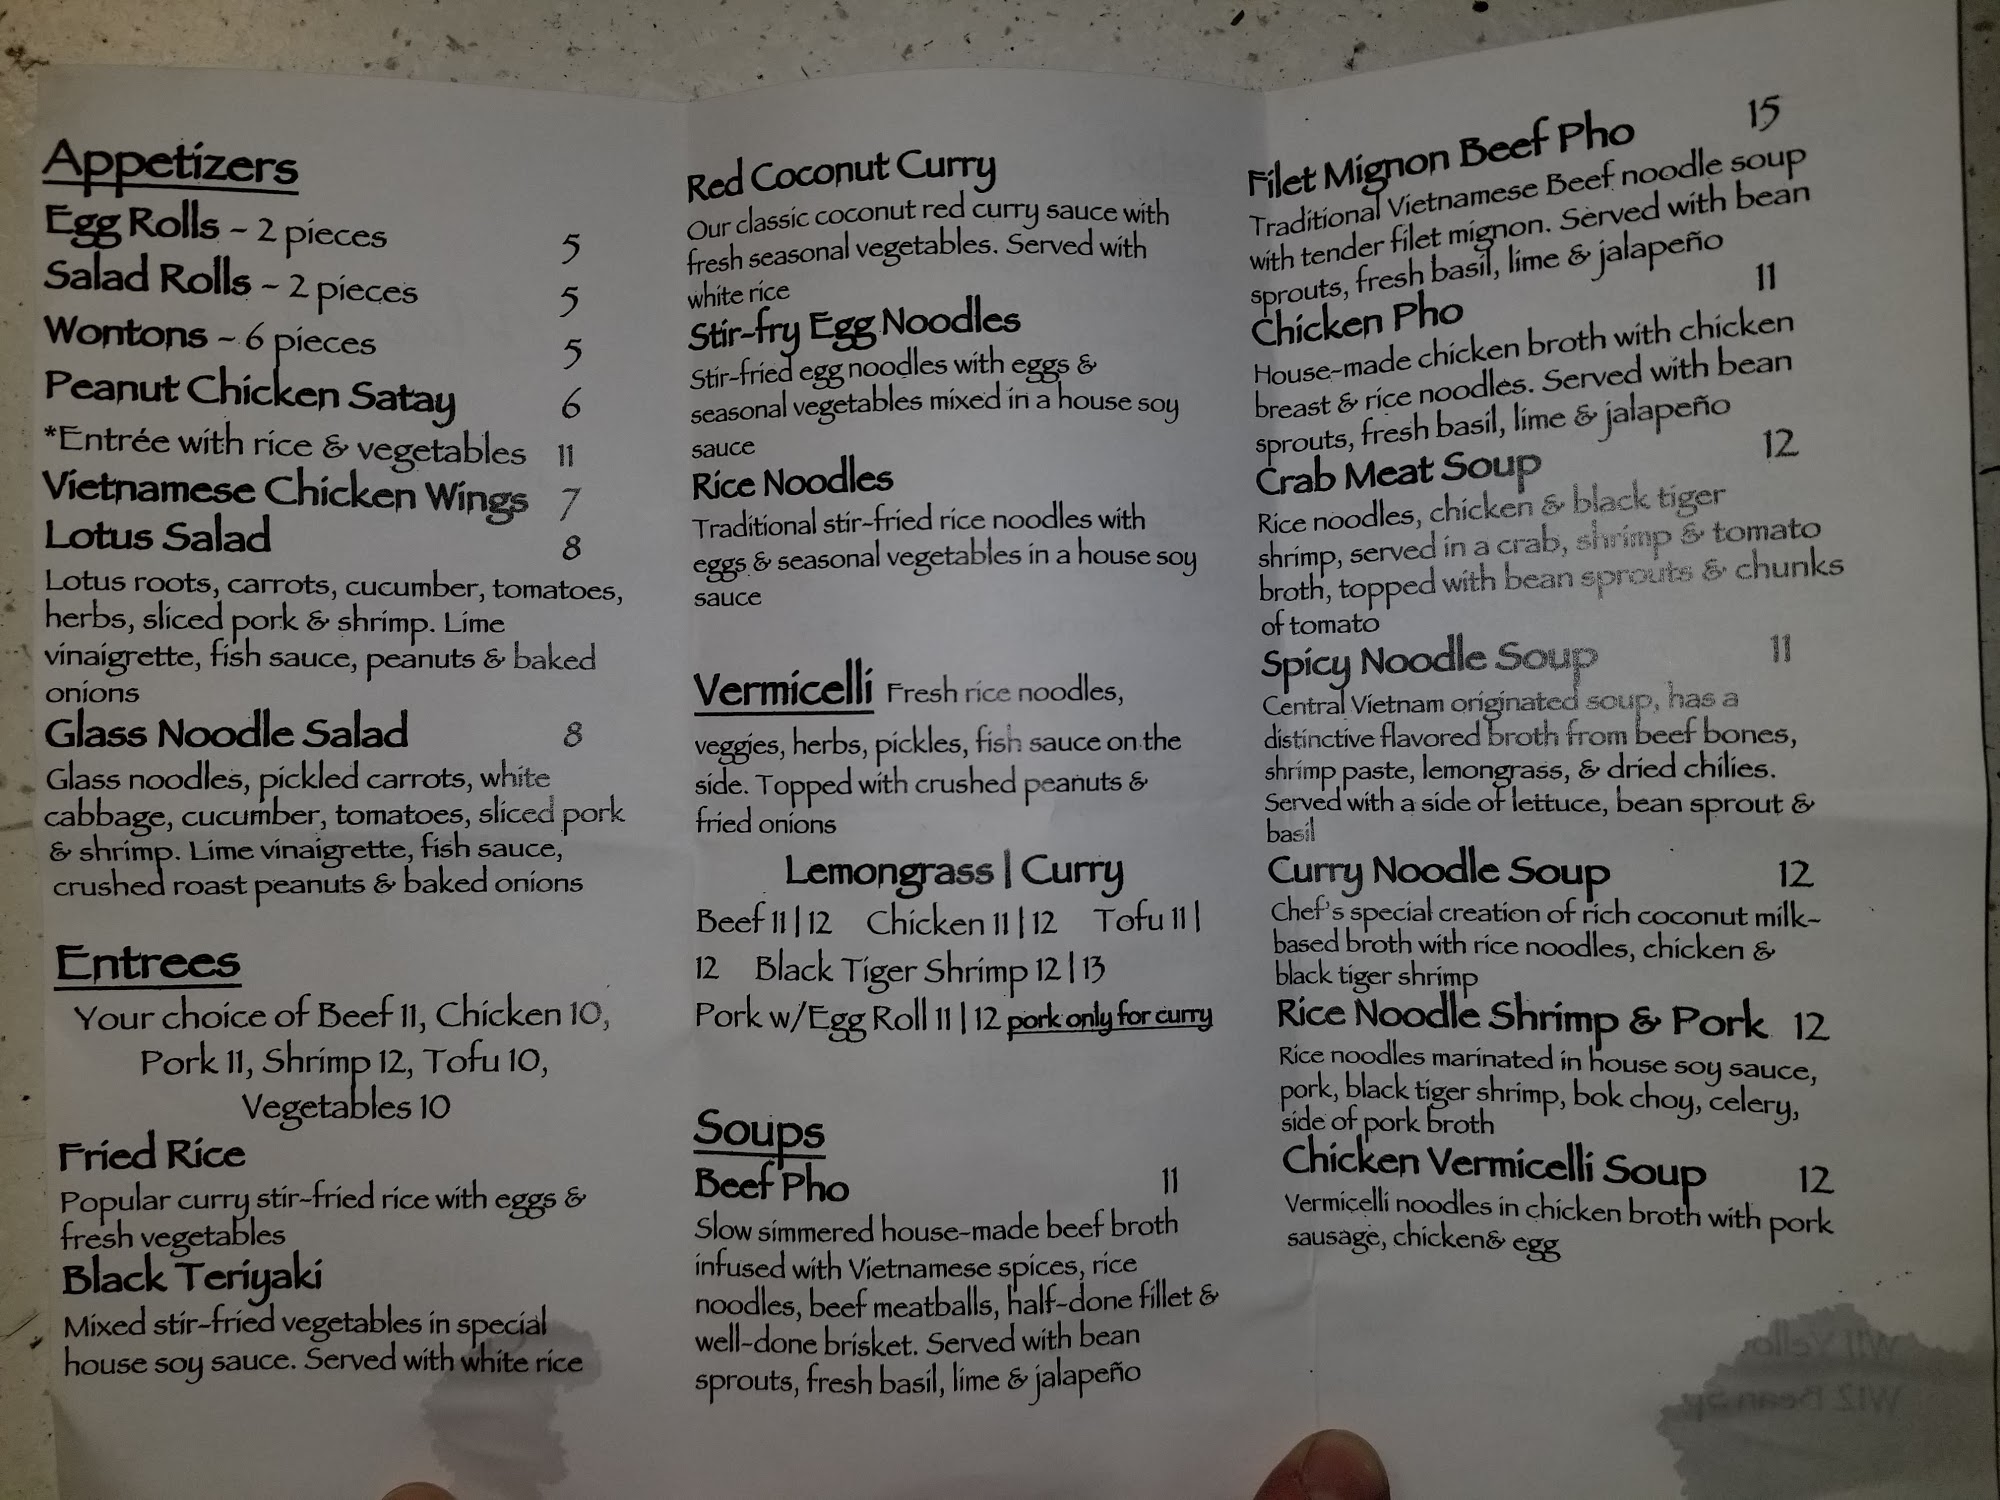 Appetizers
Egg Rolls ~ 2 pieces 5
Salad Rolls ~ 2 pieces 5
Wontons ~ 6 pieces 5
Peanut Chicken Satay 6
*Entrée with rice & vegetables 11
Vietnamese Chicken Wings 7
Lotus Salad 8
Lotus roots, carrots, cucumber, tomatoes,
herbs, sliced pork & shrimp. Lime
vinaigrette, fish sauce, peanuts & baked
onions
Glass Noodle Salad 8
Glass noodles, pickled carrots, white
cabbage, cucumber, tomatoes, sliced pork
& shrimp. Lime vinaigrette, fish sauce,
crushed roast peanuts & baked onions
Entrees
Your choice of Beef 11, Chicken 10,
Pork 11, Shrimp 12, Tofu 10,
Vegetables 10
Fried Rice
Popular curry stir-fried rice with eggs &
fresh vegetables
Black Teriyaki
Mixed stir-fried vegetables in special
house soy sauce. Served with white rice
Red Coconut Curry
Our classic coconut red curry sauce with
fresh seasonal vegetables. Served with
white rice
Stir-fry Egg Noodles
Stir-fried egg noodles with eggs &
seasonal vegetables mixed in a house soy
sauce
Rice Noodles
Traditional stir-fried rice noodles with
eggs & seasonal vegetables in a house soy
sauce
Vermicelli Fresh rice noodles,
veggies, herbs, pickles, fish sauce on the
side. Topped with crushed peanuts &
fried onions
Lemongrass | Curry
Beef 11 | 12 Chicken 11 | 12 Tofu 11 |
12 Black Tiger Shrimp 12 | 13
Pork w/Egg Roll 11 | 12 pork only for curry
Soups
Beef Pho 11
Slow simmered house-made beef broth
infused with Vietnamese spices, rice
noodles, beef meatballs, half-done fillet &
well-done brisket. Served with bean
sprouts, fresh basil, lime & jalapeño
Filet Mignon Beef Pho 15
Traditional Vietnamese Beef noodle soup
with tender filet mignon. Served with bean
sprouts, fresh basil, lime & jalapeño
Chicken Pho 11
House-made chicken broth with chicken
breast & rice noodles. Served with bean
sprouts, fresh basil, lime & jalapeño
Crab Meat Soup 12
Rice noodles, chicken & black tiger
shrimp, served in a crab, shrimp & tomato
broth, topped with bean sprouts & chunks
of tomato
Spicy Noodle Soup 11
Central Vietnam originated soup, has a
distinctive flavored broth from beef bones,
shrimp paste, lemongrass, & dried chilies.
Served with a side of lettuce, bean sprout &
basil
Curry Noodle Soup 12
Chef's special creation of rich coconut milk-
based broth with rice noodles, chicken &
black tiger shrimp
Rice Noodle Shrimp & Pork 12
Rice noodles marinated in house soy sauce,
pork, black tiger shrimp, bok choy, celery,
side of pork broth
Chicken Vermicelli Soup 12
Vermicelli noodles in chicken broth with pork
sausage, chicken& egg